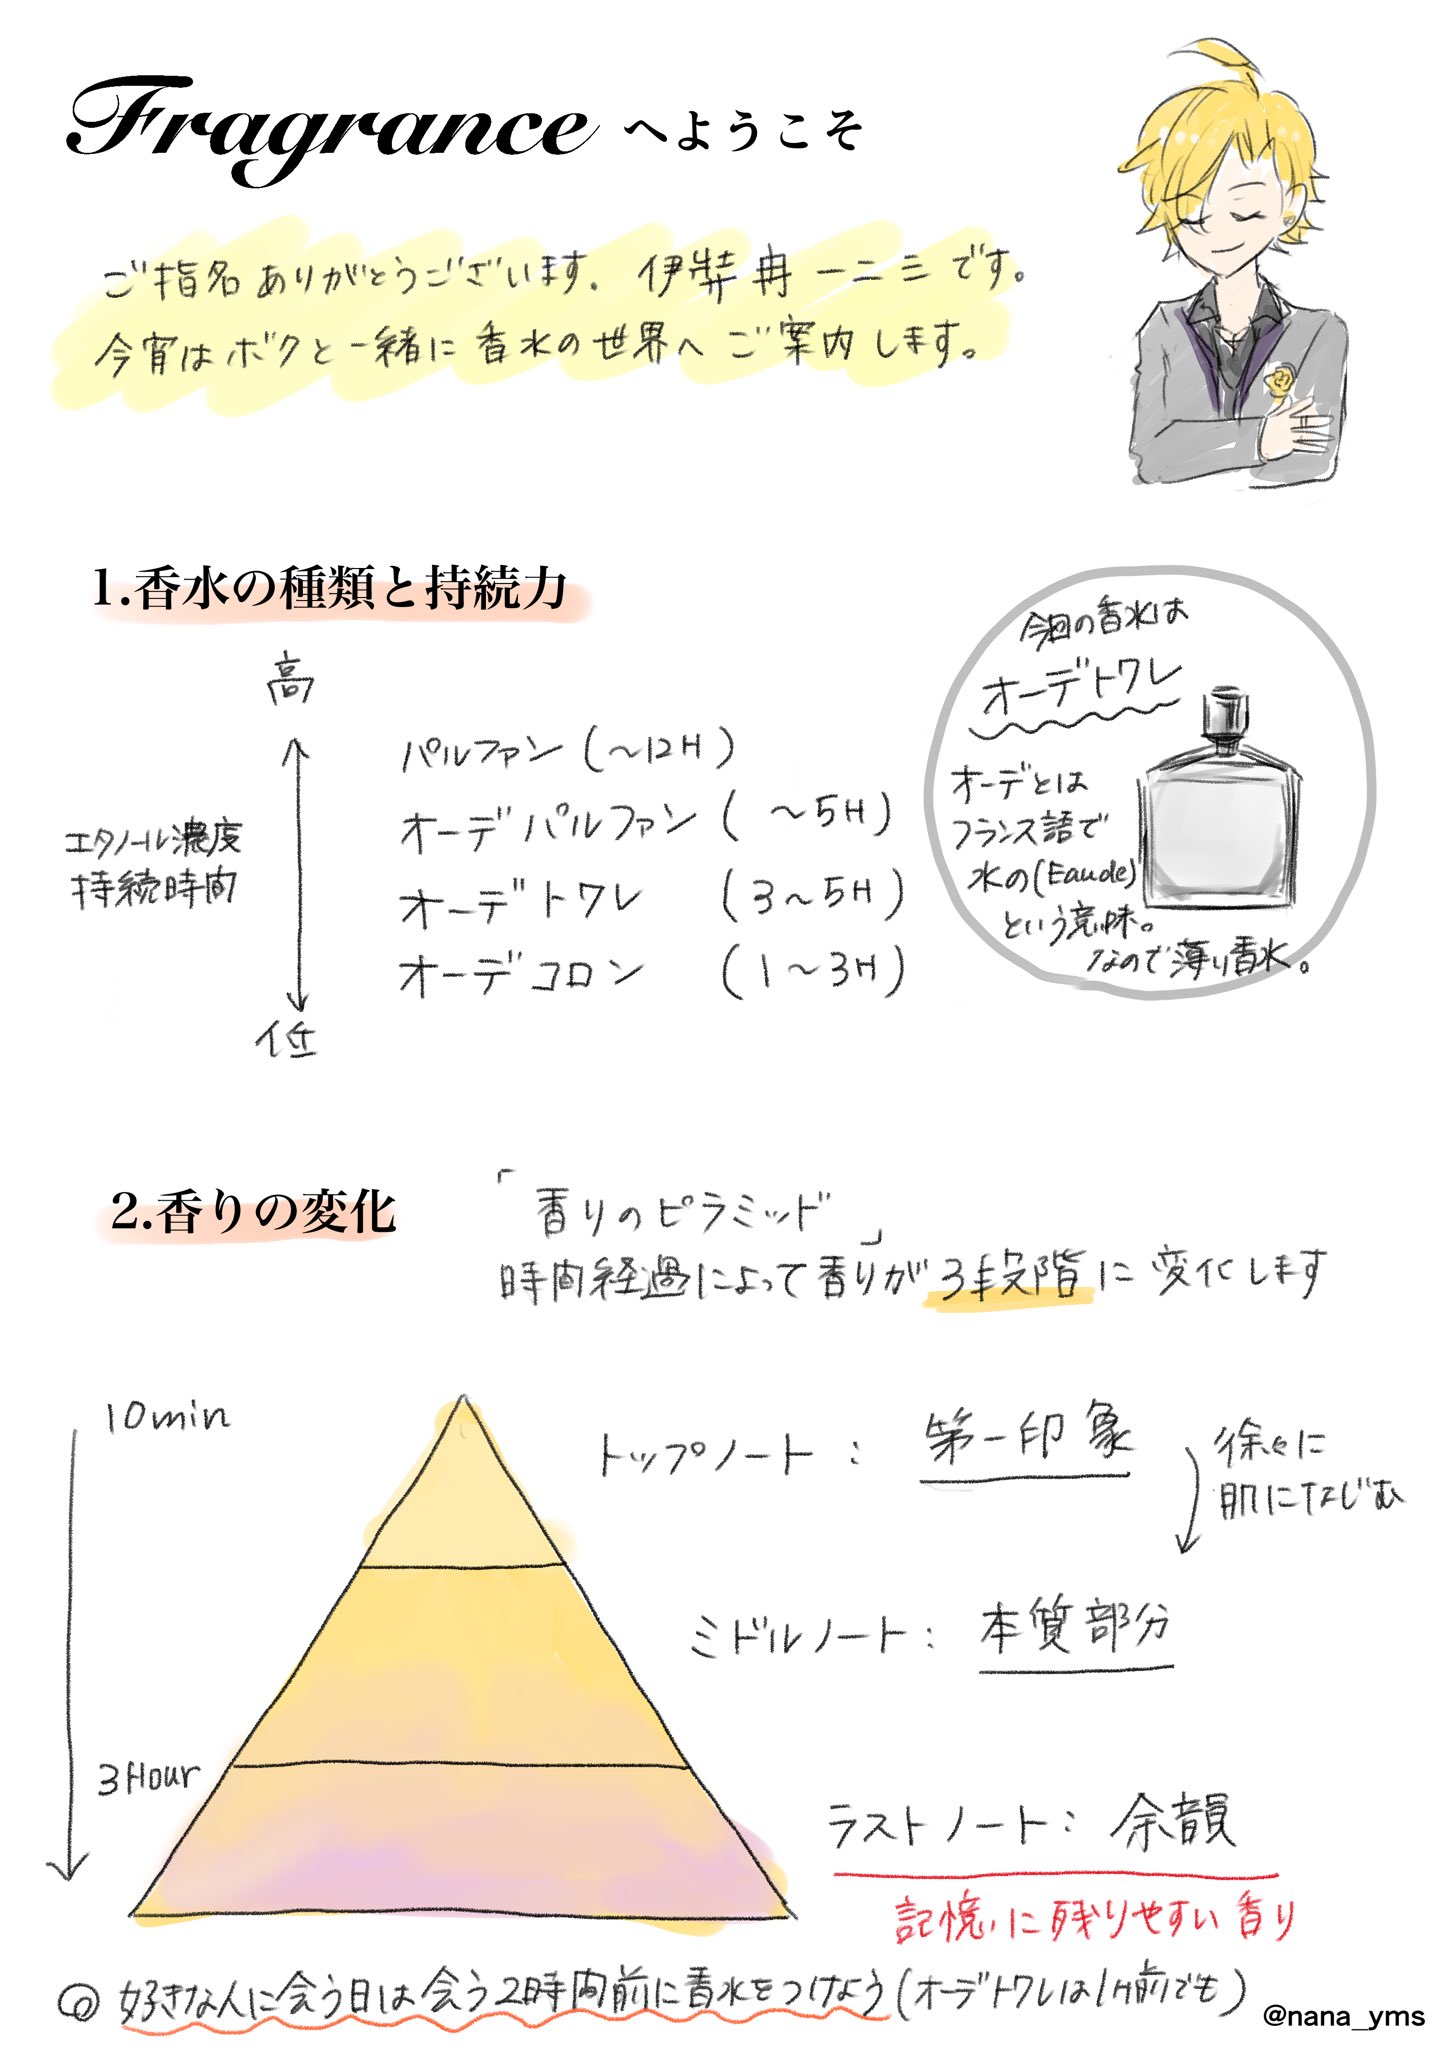 Fragranceへようこそ
ご指名ありがとうございます. 伊弉冉 一二三です。
今宵はボクと一緒に香水の世界へご案内します。
1.香水の種類と持続力
高
エタノール濃度
持続時間
低
パルファン (～12H)
オーデパルファン ( ～5H)
オーデトワレ (3～5H)
オーデコロン (1～3H)
今回の香水は
オーデトワレ
オーデとは
フランス語で
水の(Eau de)
という意味。
なので薄い香水。
2.香りの変化
「香りのピラミッド」
時間経過によって香りが3段階に変化します
10min
3Hour
トップノート : 第一印象
徐々に
肌になじむ
ミドルノート : 本質部分
ラストノート : 余韻
記憶に残りやすい香り
◎ 好きな人に会う日は会う2時間前に香水をつけよう(オーデトワレは1h前でも)
@nana_yms